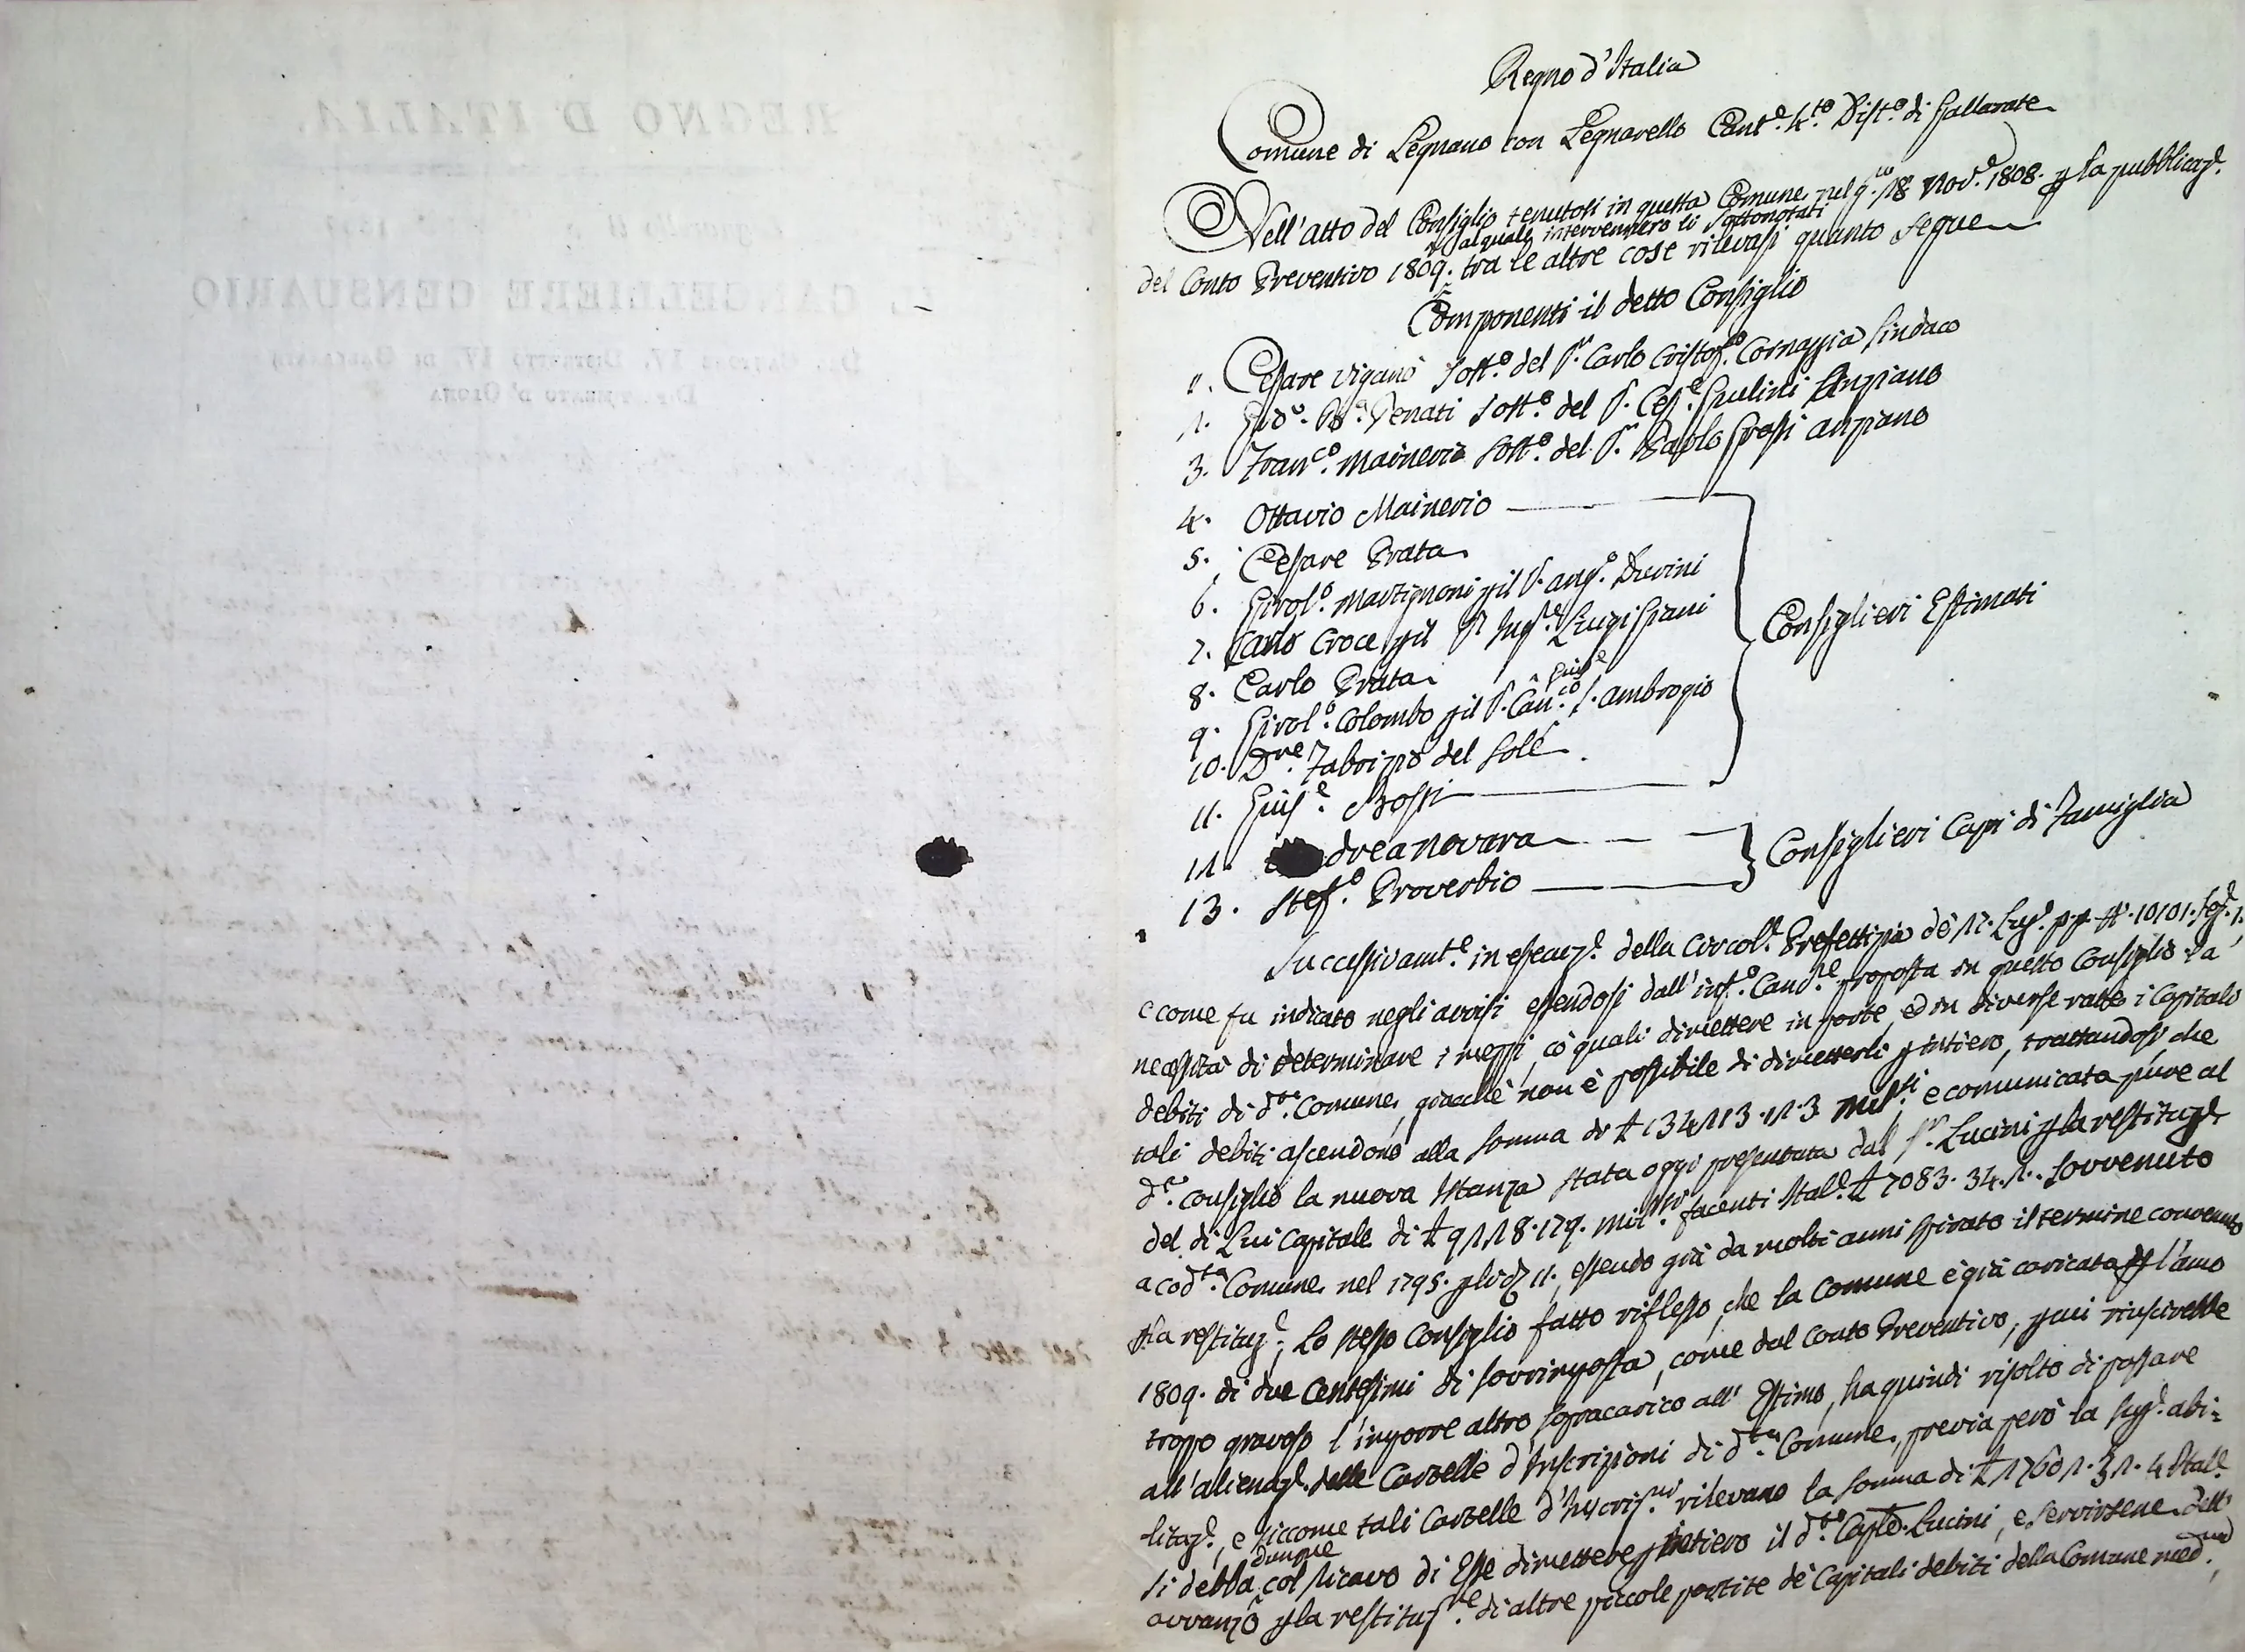 Regno d'Italia
Comune di Legnano con Legnarello Cant.e 4.to Dist.o di Gallarate
Nell'atto del Consiglio tenutosi in questa Comune nel g.no 18 Nov.e 1808. p la pubblicaz.e
al quale intervennero li sottonotati
del Conto Preventivo 1809. tra le altre cose rilevasi quanto segue
Componenti il detto Consiglio
1. Cesare Viganò Sost.o del S.r Carlo Cristof.o Cornaggia Sindaco
2. Gio. Ba. Penati Sost.o del S. Ces.e Giulini Anziano
3. Fran.co Mainerio Sost.o del S.r Paolo Grassi Anziano
4. Ottavio Mainerio
5. Cesare Prata
6. Girol.o Martignoni pil S. Ang.o Durini
Consiglieri Estimati
7. Carlo Croce pil S.r Ing.e Luigi Piani
8. Carlo Prata
Giuse
9. Girol.o Colombo pil S. Can.co S. Ambrogio
10. D.re Fabrizio del Sole
11. Gius.e Bossi
12. drea Novara
Consiglieri Capi di Famiglia
13. Stef.o Proverbio
Successivam.te in esecuz.e della Circol.e Prefettizia de 12. Lug.o p.p. N. 10101. Sez.e 1.
e come fu indicato negli avvisi essendosi dall'inf.o Canc.re proposta in questo Consiglio la
necessità di determinare i mezzi, co' quali dimettere in parte, ed in diverse ratte i Capitali
debiti di d.ta Comune, giacchè non è possibile di dimetterli p intiero, trattandosi, che
tali debiti ascendono alla somma di £ 134213.2.3 Mil.si e comunicata pure al
d.o Consiglio la nuova Istanza stata oggi presentata dal S.r Lucini p la restituz.e
del di Lui Capitale di £ 9228.179. Mil.si facenti Ital.e £ 7083.34.2. sovvenuto
a cod.ta Comune nel 1795. essendo già da molti anni spirato il termine convenuto
p la restituz.e; Lo stesso Consiglio fatto riflesso, che la Comune è già caricata p l'anno
1809. di due Centesimi di sovrimposta, come dal Conto Preventivo, p cui riuscirebbe
troppo gravoso l'imporre altro sopracarico all'Estimo, ha quindi risolto di passare
all'alienaz.e delle Cartelle d'Inscrizioni di d.ta Comune, previa però la sup.e abi=
litaz.e, e siccome tali Cartelle d'Inscriz.ni rilevano la somma di £ 17602.32.4 Ital.e
dunque
si debba col ricavo di Esse dimettere p intiero il d.to Cap.le Lucini, e servirsene dell'
avvanzo p la restituz.ne di altre piccole partite de' Capitali debiti della Comune med.ma,